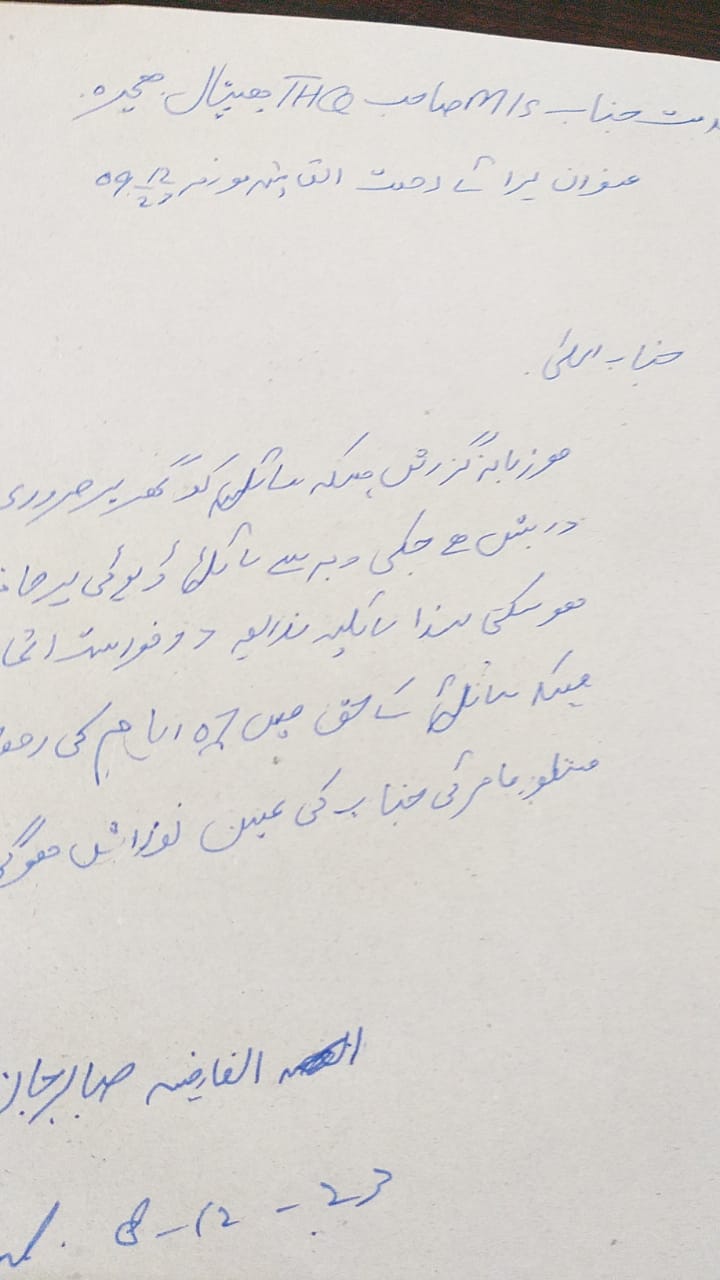 خدمت جناب M/S صاحب THQ ہسپتال ہجیرہ
عنوان برائے رخصت اتفاقیہ مورخہ 09-12-23
جناب اعلیٰ
مودبانہ گزارش ہیکہ سائلہ کو گھر پر ضروری
درپیش ہے جسکی وجہ سے سائلہ ڈیوٹی پر حا
ہو سکتی لہذا سائلہ بذریعہ درخواست
ہیکہ سائلہ کے حق میں 01 ایام کی
منظور فرمائی جناب کی عین نوازش ہوگی
العارضہ صابر جان
8-12-23